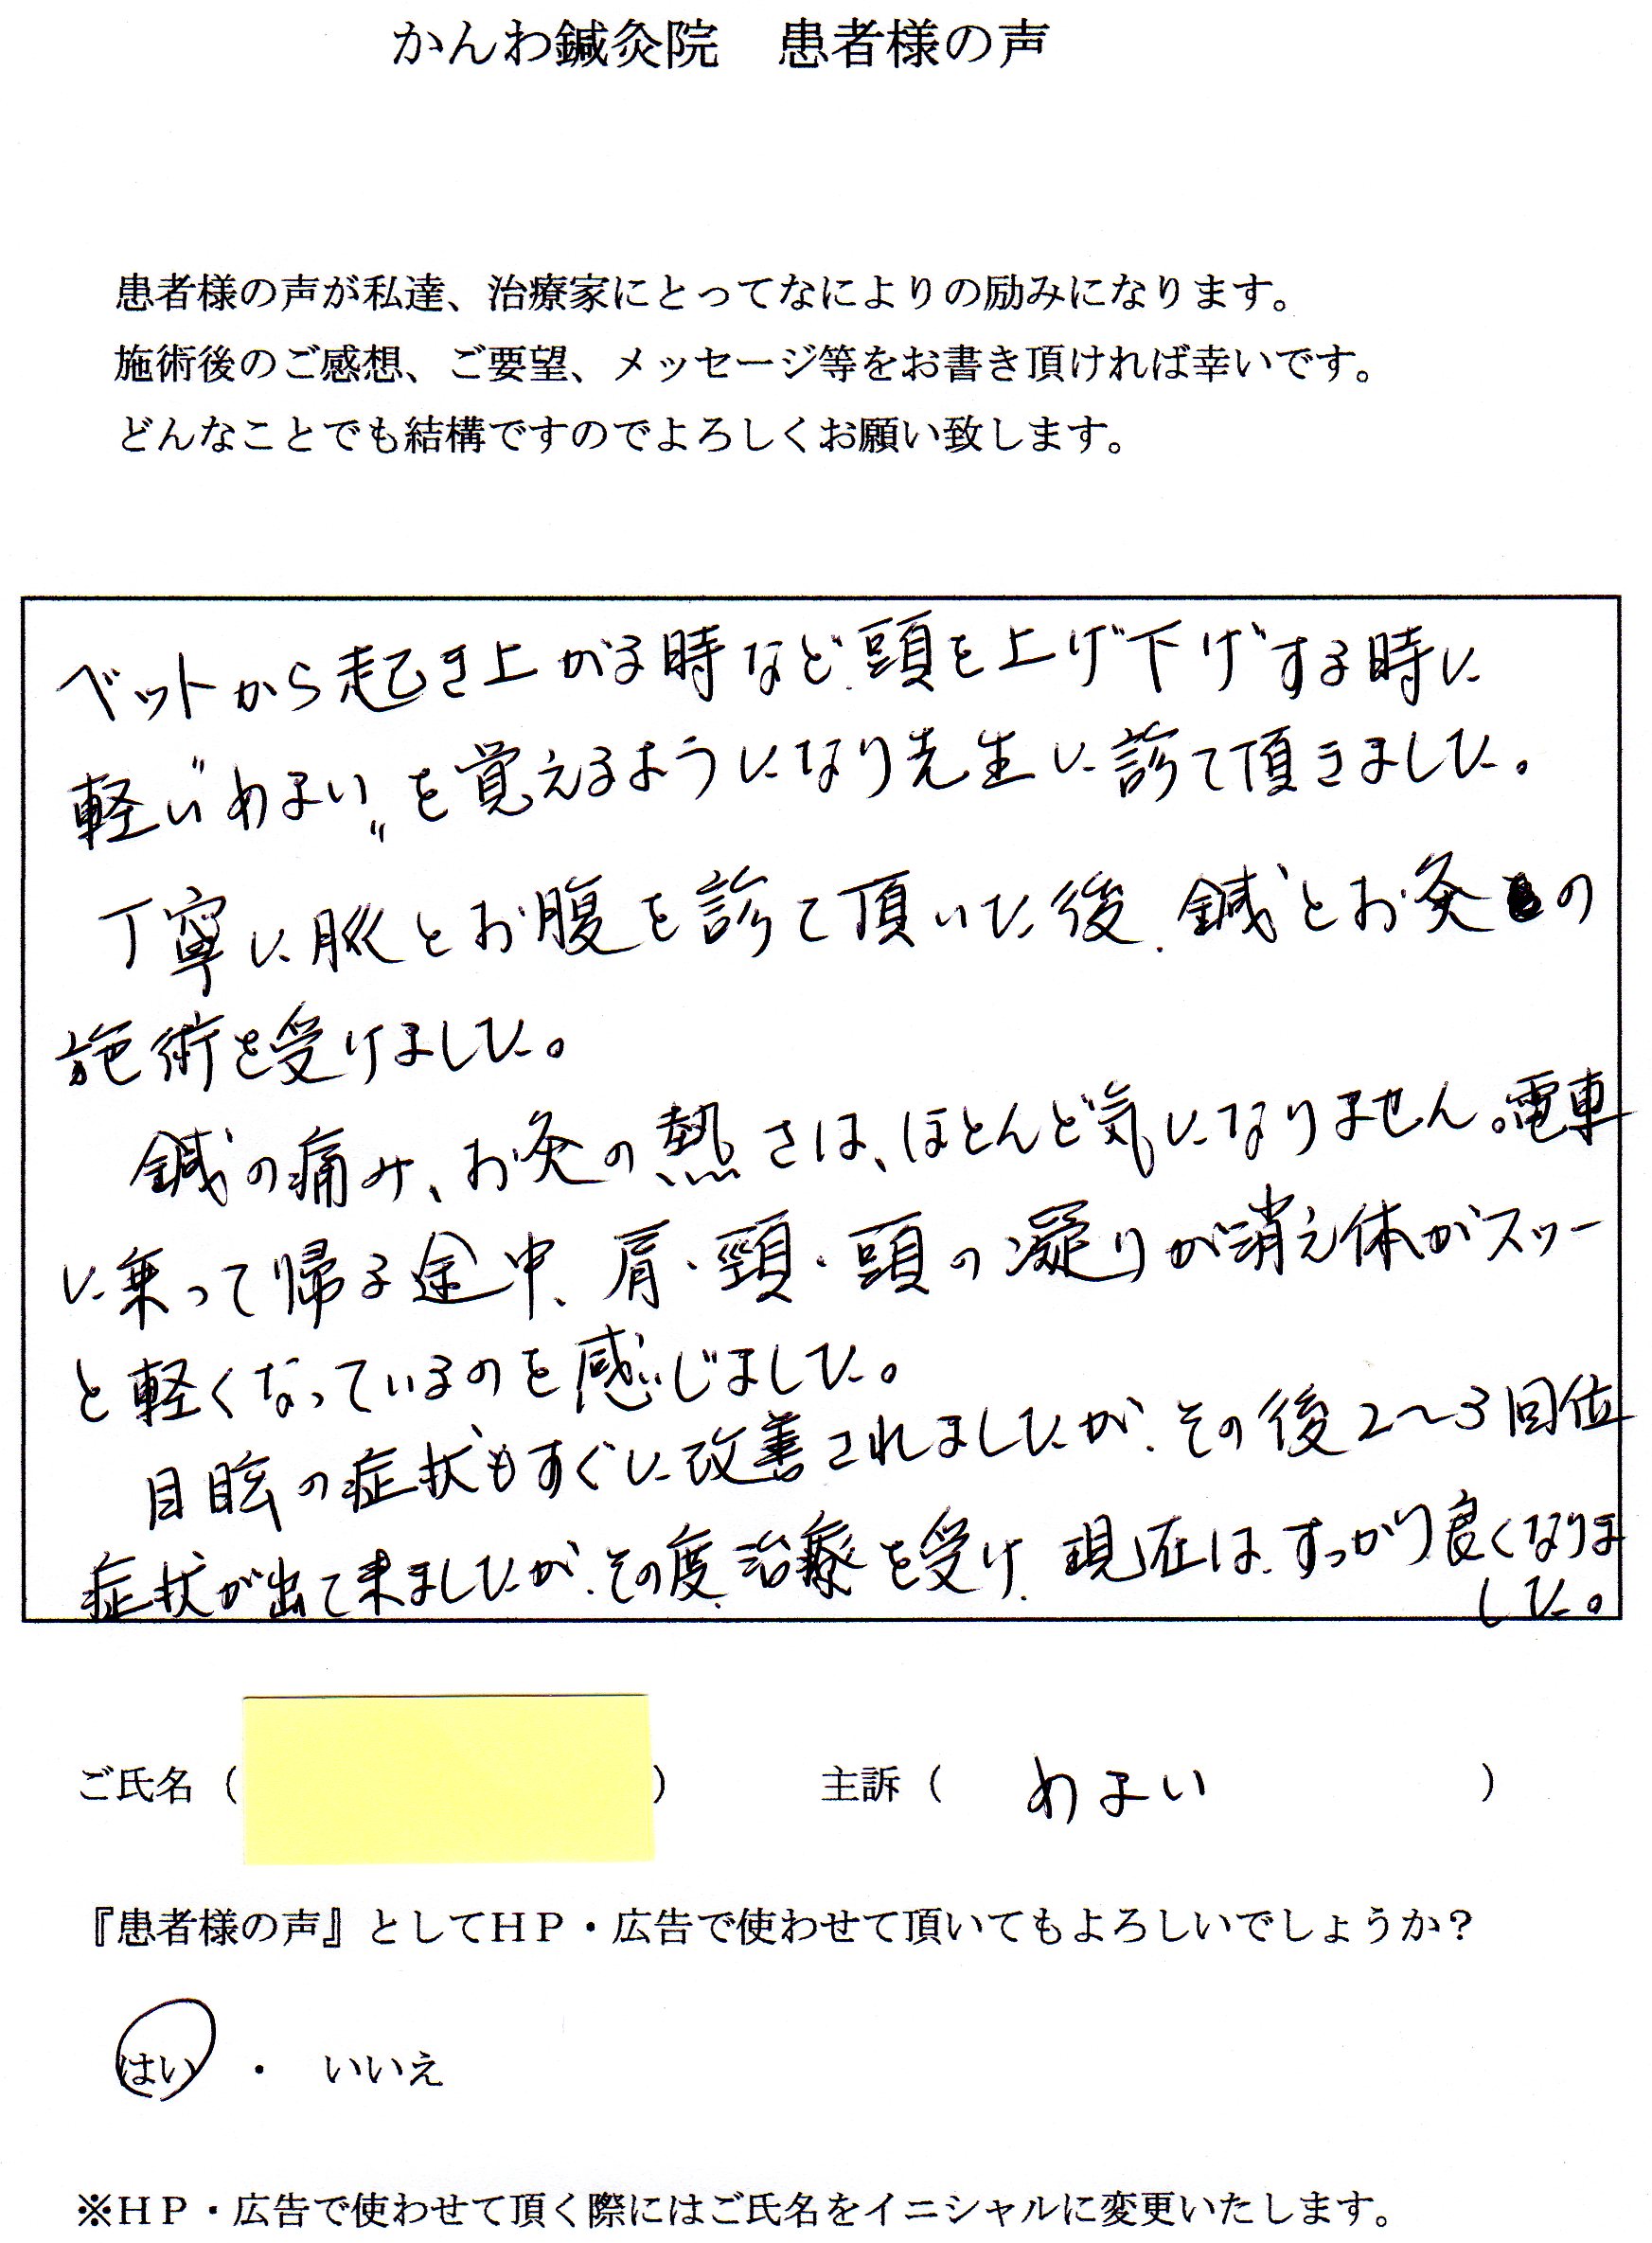 かんわ鍼灸院　患者様の声
患者様の声が私達、治療家にとってなによりの励みになります。
施術後のご感想、ご要望、メッセージ等をお書き頂ければ幸いです。
どんなことでも結構ですのでよろしくお願い致します。
ベットから起き上がる時など、頭を上げ下げする時に
軽い“めまい”を覚えるようになり先生に診て頂きました。
丁寧に脈とお腹を診て頂いた後、鍼とお灸の
施術を受けました。
鍼の痛み、お灸の熱さは、ほとんど気になりません。電車
に乗って帰る途中、肩・頸・頭の凝りが消え体がスッー
と軽くなっているのを感じました。
目眩の症状もすぐに改善されましたが、その後2〜3回位
症状が出て来ましたが、その度、治療を受け、現在は、すっかり良くなりま
した。
ご氏名（　　　）　主訴（　めまい　）
『患者様の声』としてＨＰ・広告で使わせて頂いてもよろしいでしょうか？
はい　・　いいえ
※ＨＰ・広告で使わせて頂く際にはご氏名をイニシャルに変更いたします。